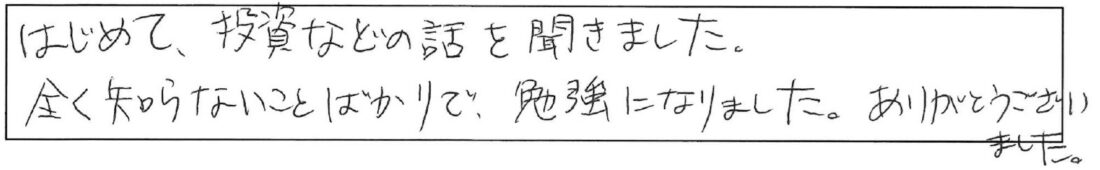 はじめて、投資などの話を聞きました。
全く知らないことばかりで、勉強になりました。ありがとうござい
ました。